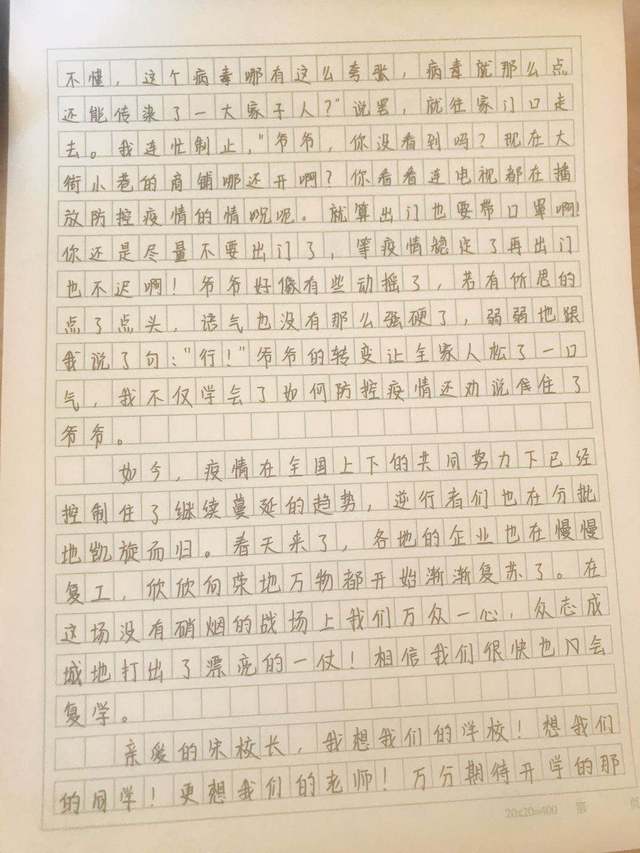 不懂，这个病毒哪有这么夸张，病毒就那么点
还能传染了一大家子人？"说罢，就往家门口走
去。我连忙制止，"爷爷，你没看到吗？现在大
街小巷的商铺哪还开啊？你看看连电视都在播
放防控疫情的情况呢。就算出门也要带口罩啊！
你还是尽量不要出门了，等疫情稳定了再出门
也不迟啊！爷爷好像有些动摇了，若有所思的
点了点头，语气也没有那么强硬了，弱弱地跟
我说了句："行！"爷爷的转变让全家人松了一口
气，我不仅学会了如何防控疫情还劝说住了
爷爷。
如今，疫情在全国上下的共同努力下已经
控制住了继续蔓延的趋势，逆行者们也在分批
地凯旋而归。春天来了，各地的企业也在慢慢
复工，欣欣向荣地万物都开始渐渐复苏了。在
这场没有硝烟的战场上我们万众一心，众志成
城地打出了漂亮的一仗！相信我们很快也会
复学。
亲爱的宋校长，我想我们的洋校！想我们
的同学！更想我们的老师！万分期待开学的那
20x20=400 第 页